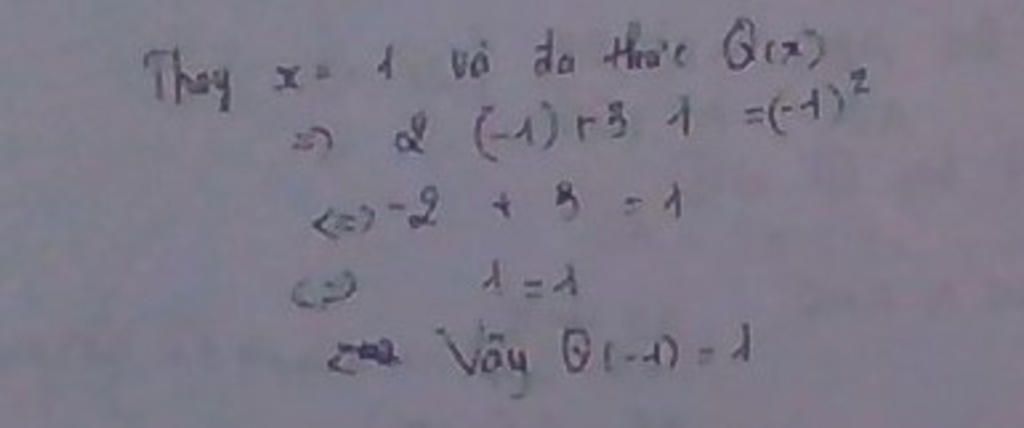 Thay x = 1 và đa thức Q(x)
=> 2 (-1) + 3 1 = (-1)²
<=> -2 + 3 = 1
<=> 1 = 1
Vậy Q(-1) = 1